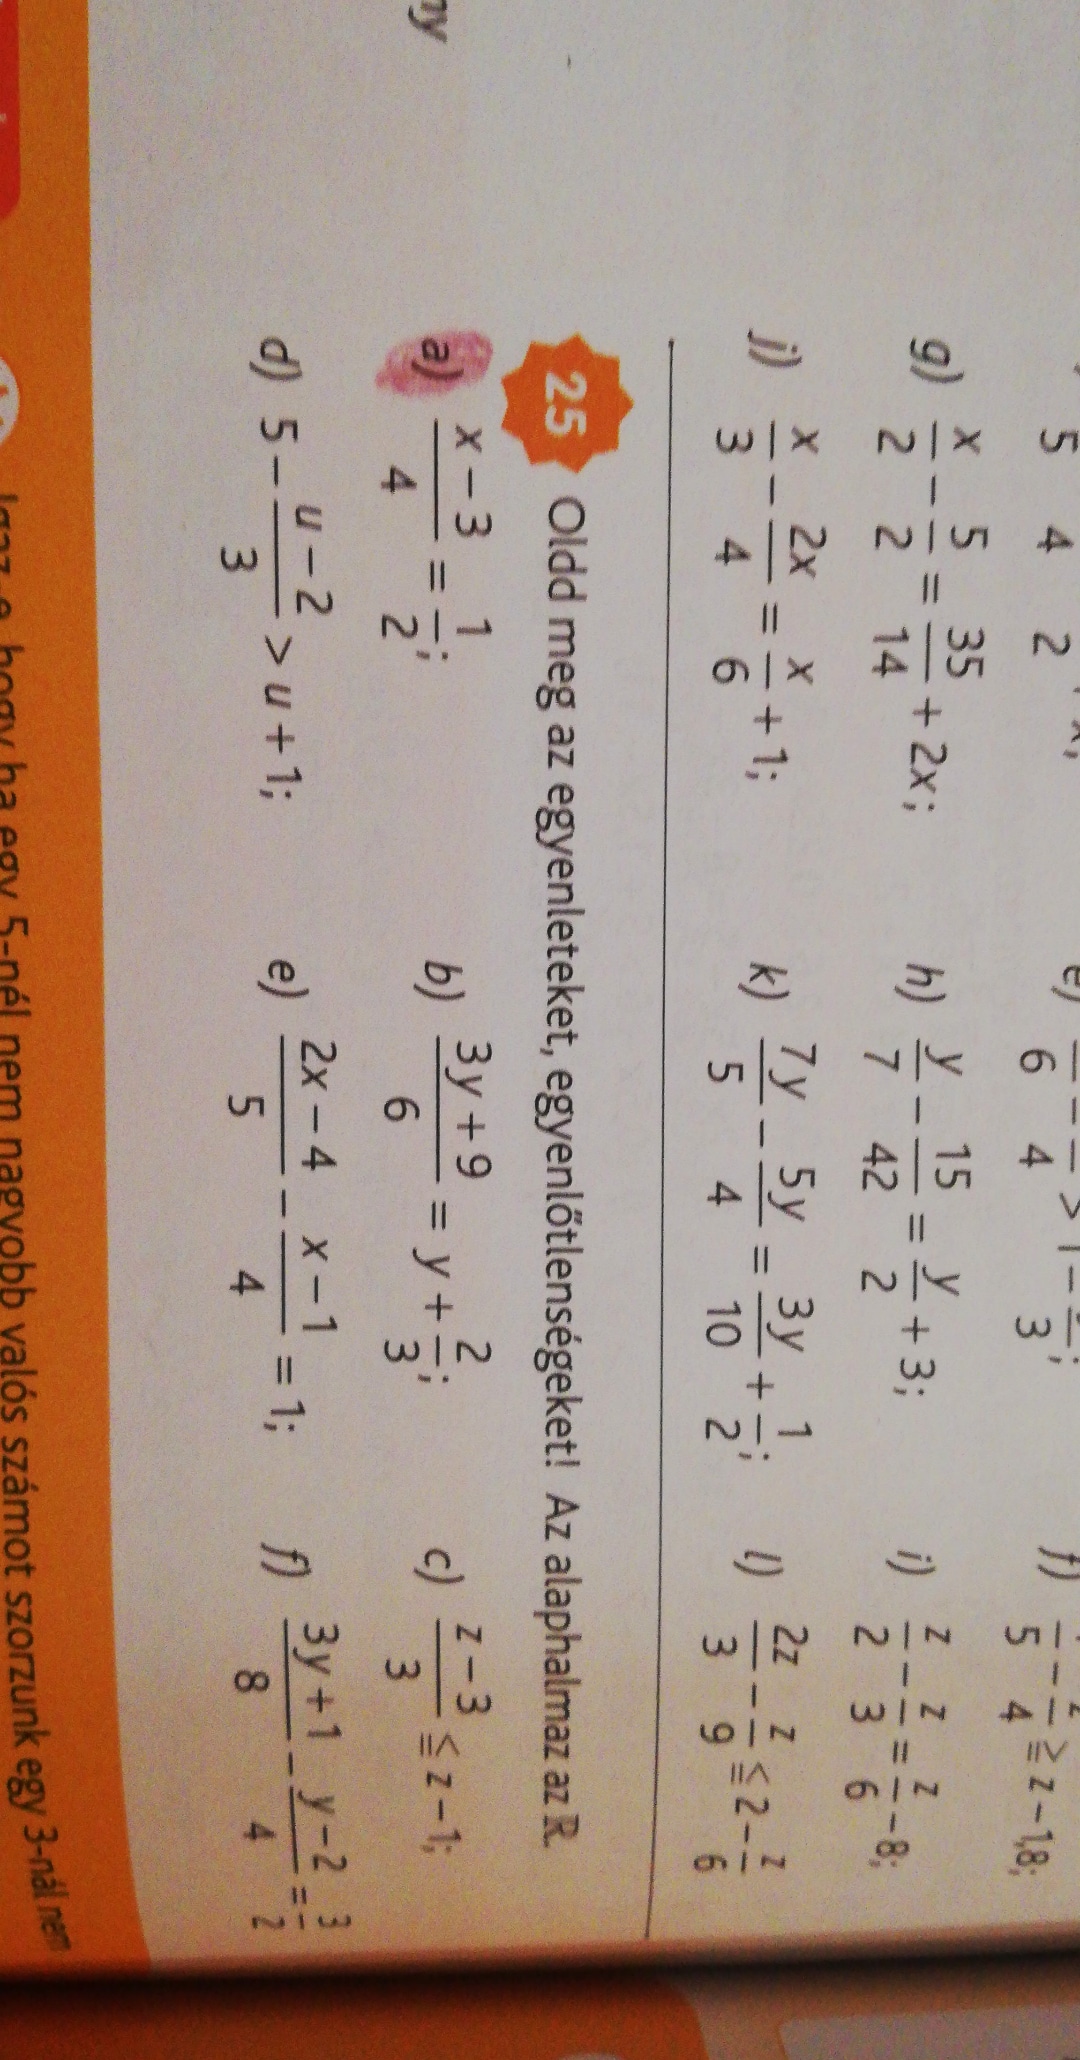 g) x/2 − 5/2 = 35/14 + 2x;
h) y/7 − 15/42 = y/2 + 3;
i) z/2 − z/3 = z/6 − 8;
j) x/3 − 2x/4 = x/6 + 1;
k) 7y/5 − 5y/4 = 3y/10 + 1/2;
l) 2z/3 − z/9 ≦ 2 − z/6
25 Oldd meg az egyenleteket, egyenlőtlenségeket! Az alaphalmaz az ℝ.
a) x − 3/4 = 1/2;
b) 3y + 9/6 = y + 2/3;
c) z − 3/3 ≦ z − 1;
d) 5 − u − 2/3 > u + 1;
e) 2x − 4/5 − x − 1/4 = 1;
f) 3y + 1/8 − y − 2/4 = 3/2
hogy ha egy 5-nél nem nagyobb valós számot szorzunk egy 3-nál nem